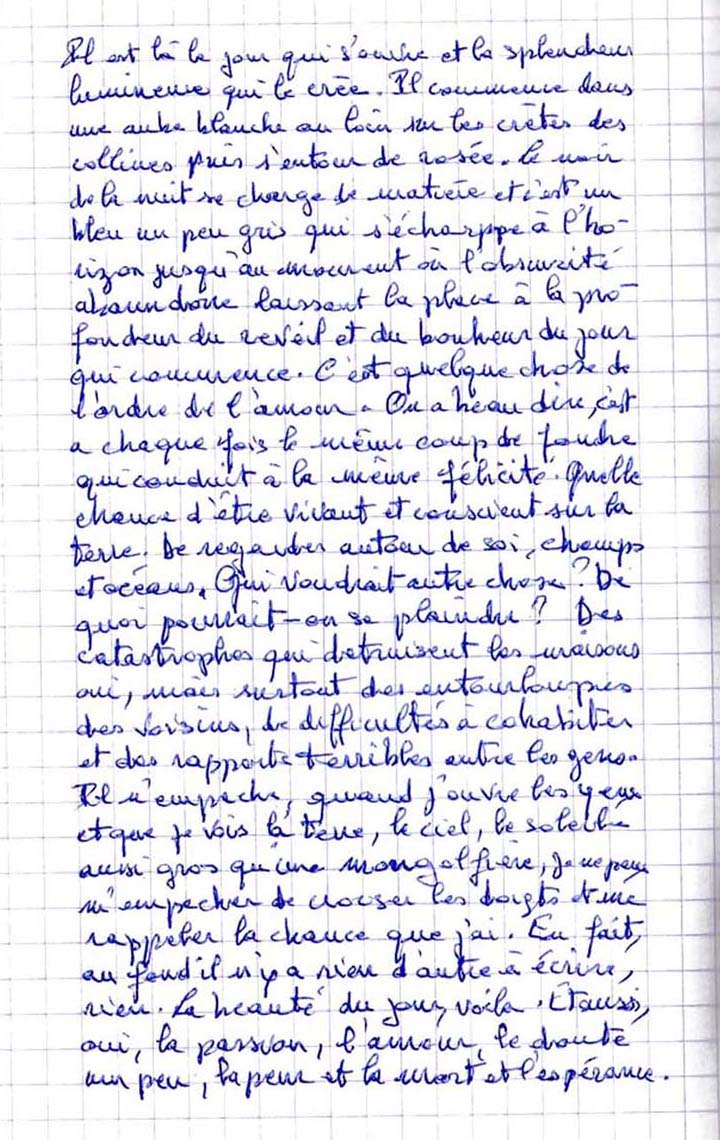 Il est là le jour qui s'ouvre et la splendeur
lumineuse qui le crée. Il commence dans
une aube blanche au loin sur les crêtes des
collines puis s'entour de rosée. Le noir
de la nuit se charge de matière et c'est un
bleu un peu gris qui s'écharppe à l'ho-
rizon jusqu'au moment où l'obscurité
abandonne laissant la place à la pro-
fondeur du reveil et du bonheur du jour
qui commence. C'est quelque chose de
l'ordre de l'amour. On a beau dire, c'est
a chaque fois le même coup de foudre
qui conduit à la même félicité. Quelle
chance d'être vivant et conscient sur la
terre. De regarder autour de soi, champs
et océans. Qui voudrait autre chose? De
quoi pourrait-on se plaindre? Des
catastrophes qui detruisent les maisons
oui, mais surtout des entourloupes
des voisins, de difficultés à cohabiter
et des rapports terribles entre les gens.
Il n'empeche, quand j'ouvre les yeux
et que je vois la terre, le ciel, le soleil
aussi gros qu'une mongolfière, je ne peux
m'empecher de croiser les doigts et me
rappeler la chance que j'ai. En fait,
au fond il n'y a rien d'autre à écrire,
rien. La beauté du jour, voila. Et aussi,
oui, la passion, l'amour, le doute
un peu, la peur et la mort et l'espérance.